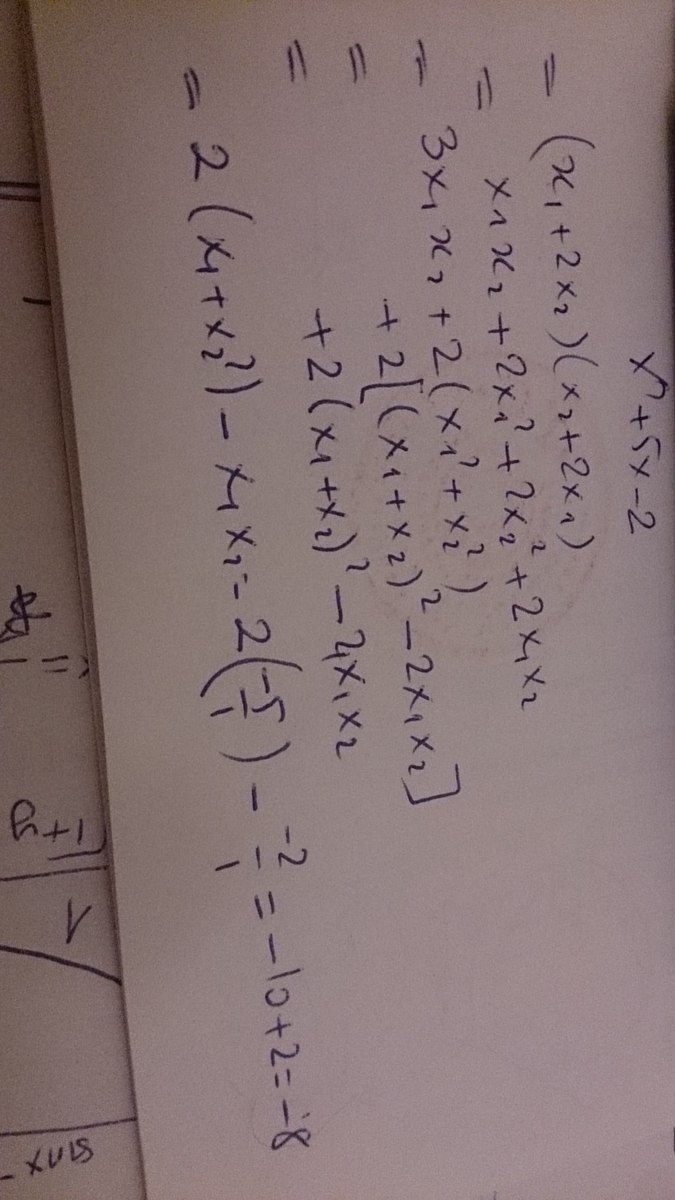 x²+5x-2
= (x₁+2x₂)(x₂+2x₁)
= x₁x₂+2x₁²+2x₂²+2x₁x₂
= 3x₁x₂+2(x₁²+x₂²)
= +2[(x₁+x₂)²-2x₁x₂]
= +2(x₁+x₂)²-4x₁x₂
= 2(x₁+x₂²)-x₁x₂=2(-5/1)--2/1=-10+2=-8
1
sinx